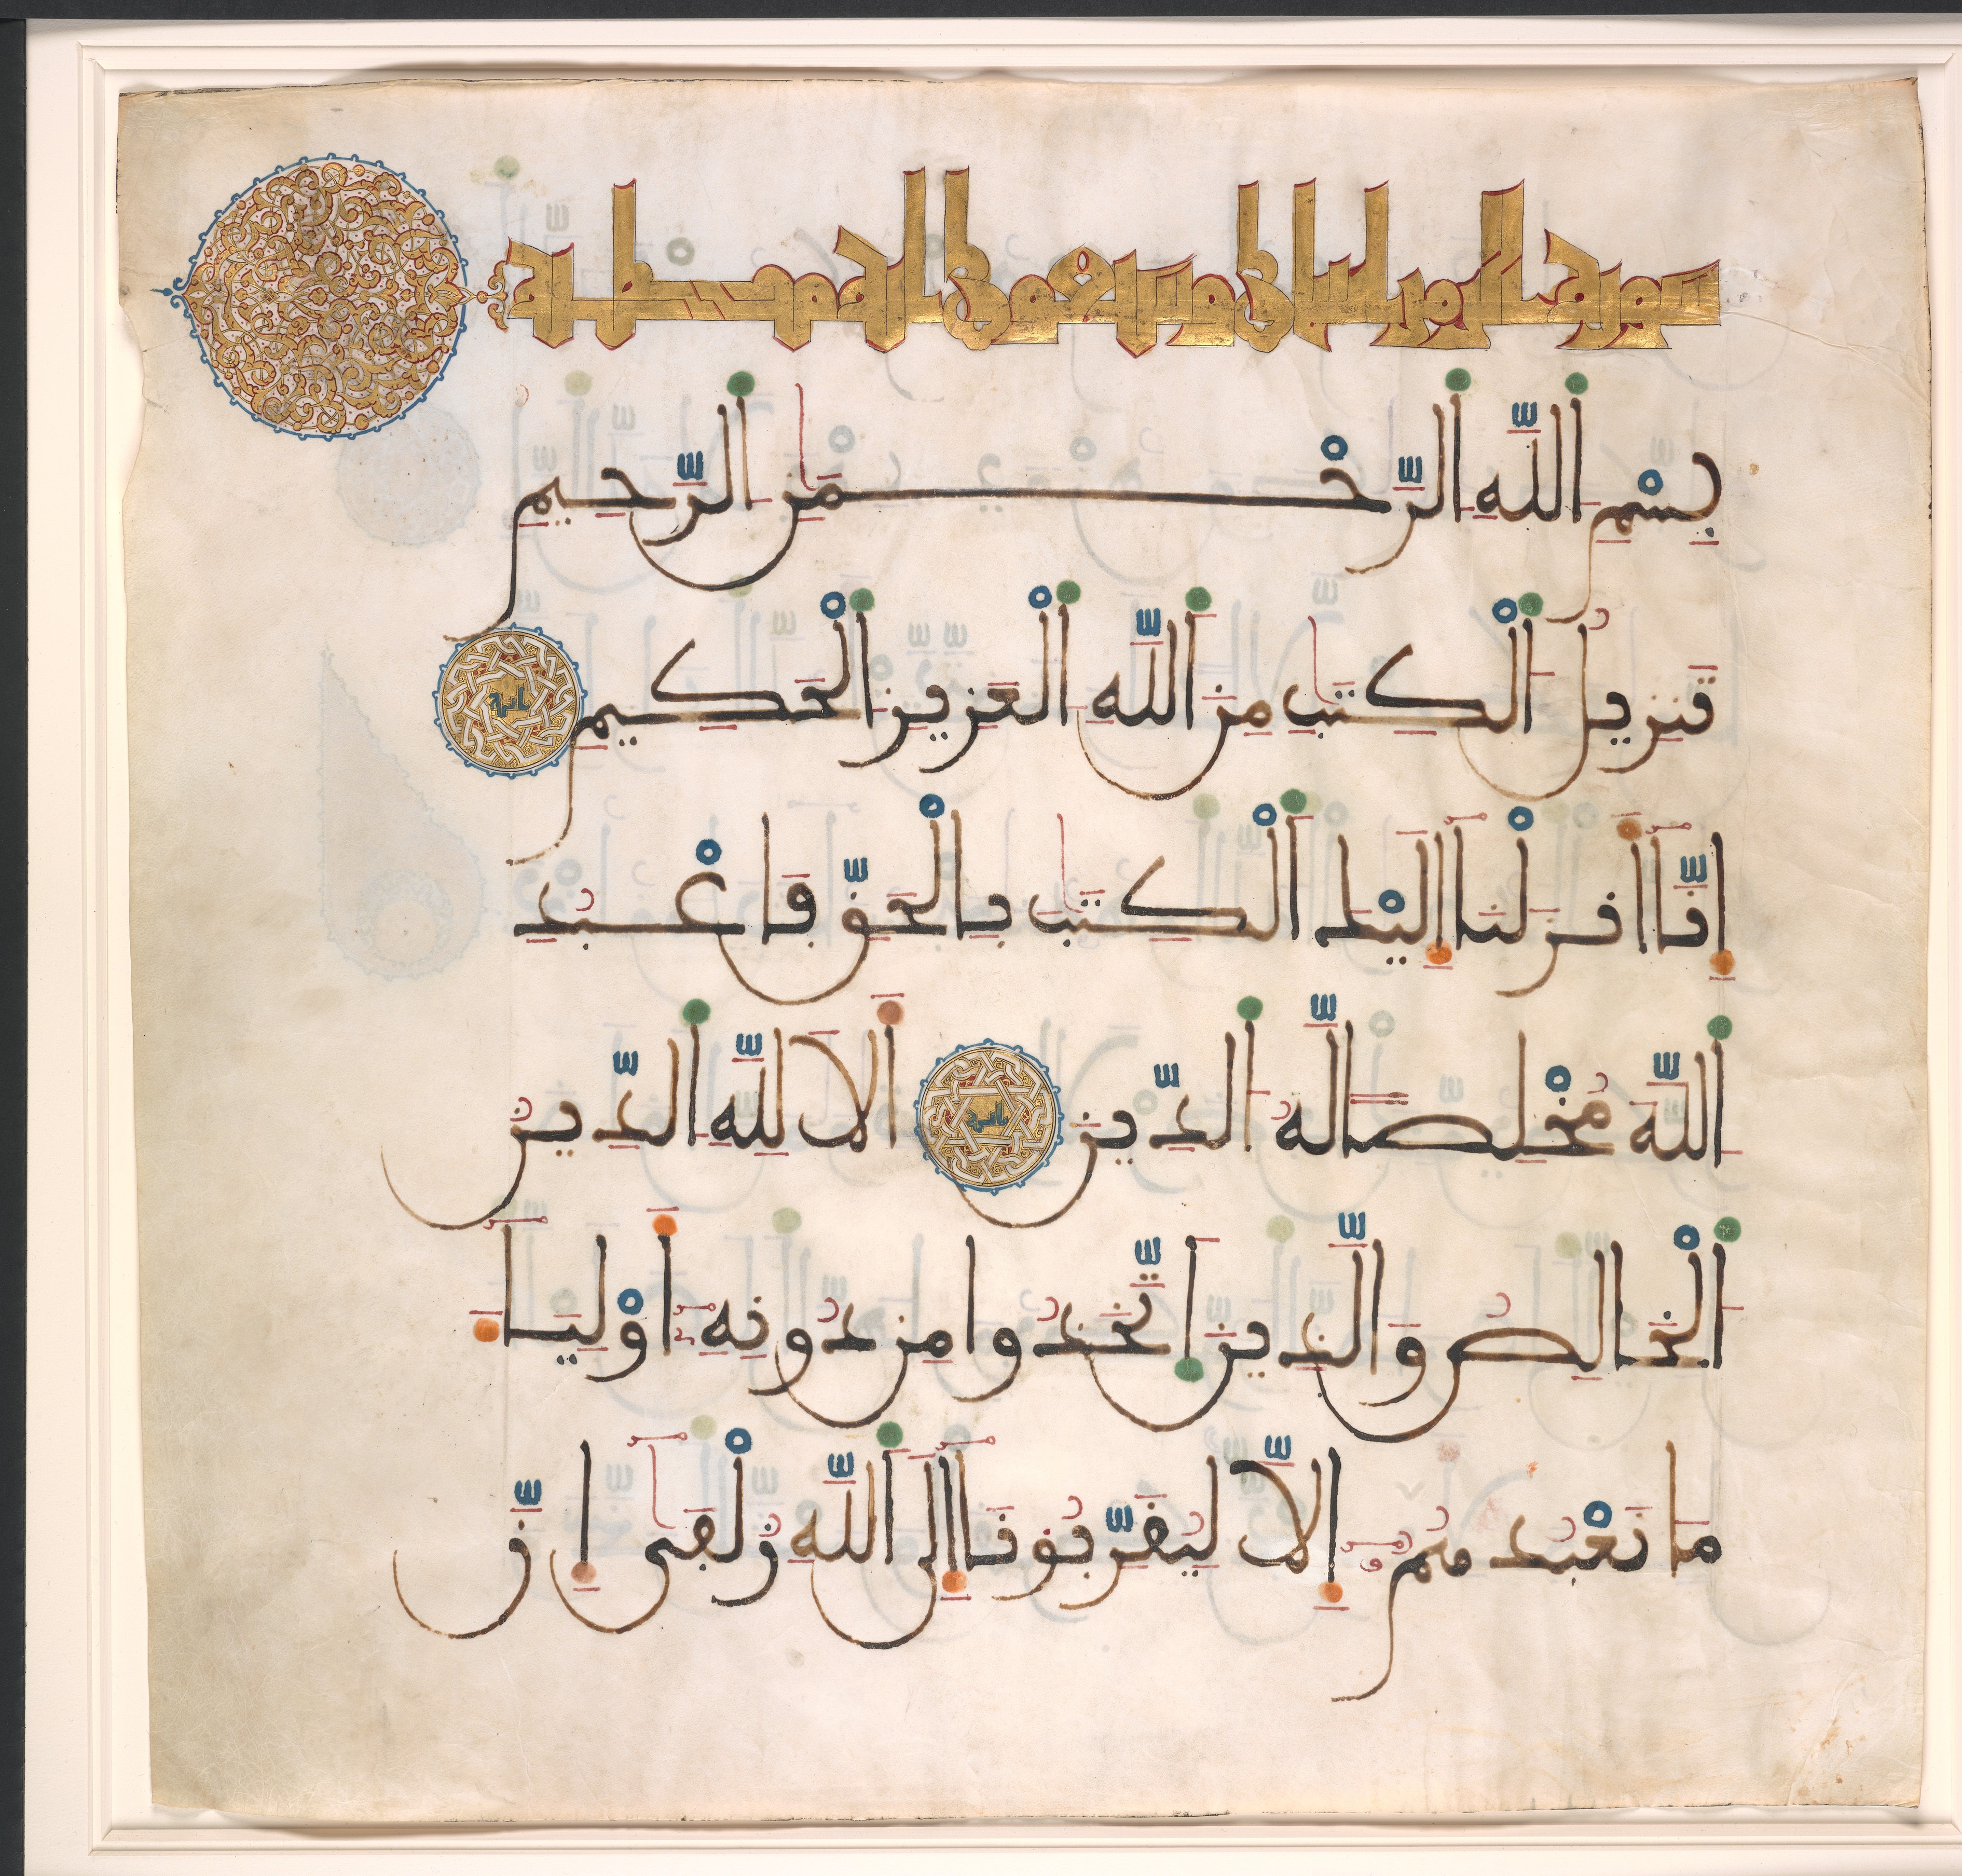 سورة الزمر اثنتان وسبعون اية
بِسْمِ اللَّهِ الرَّحْمَٰنِ الرَّحِيمِ
تَنزِيلُ الْكِتَٰبِ مِنَ اللَّهِ الْعَزِيزِ الْحَكِيمِ
إِنَّا أَنزَلْنَا إِلَيْكَ الْكِتَٰبَ بِالْحَقِّ فَاعْبُدِ
اللَّهَ مُخْلِصًا لَّهُ الدِّينَ أَلَا لِلَّهِ الدِّينُ
الْخَالِصُ وَالَّذِينَ اتَّخَذُوا مِن دُونِهِ أَوْلِيَاءَ
مَا نَعْبُدُهُمُ إِلَّا لِيُقَرِّبُونَا إِلَى اللَّهِ زُلْفَىٰ إِنَّ